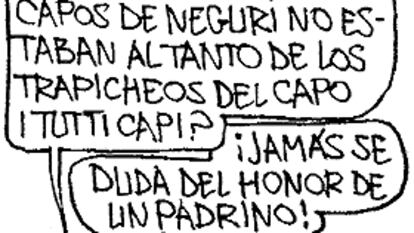 CAPOS DE NEGURI NO ES-
TABAN AL TANTO DE LOS
TRAPICHEOS DEL CAPO
I TUTTI CAPI?
¡JAMÁS SE
DUDA DEL HONOR DE
UN PADRINO!